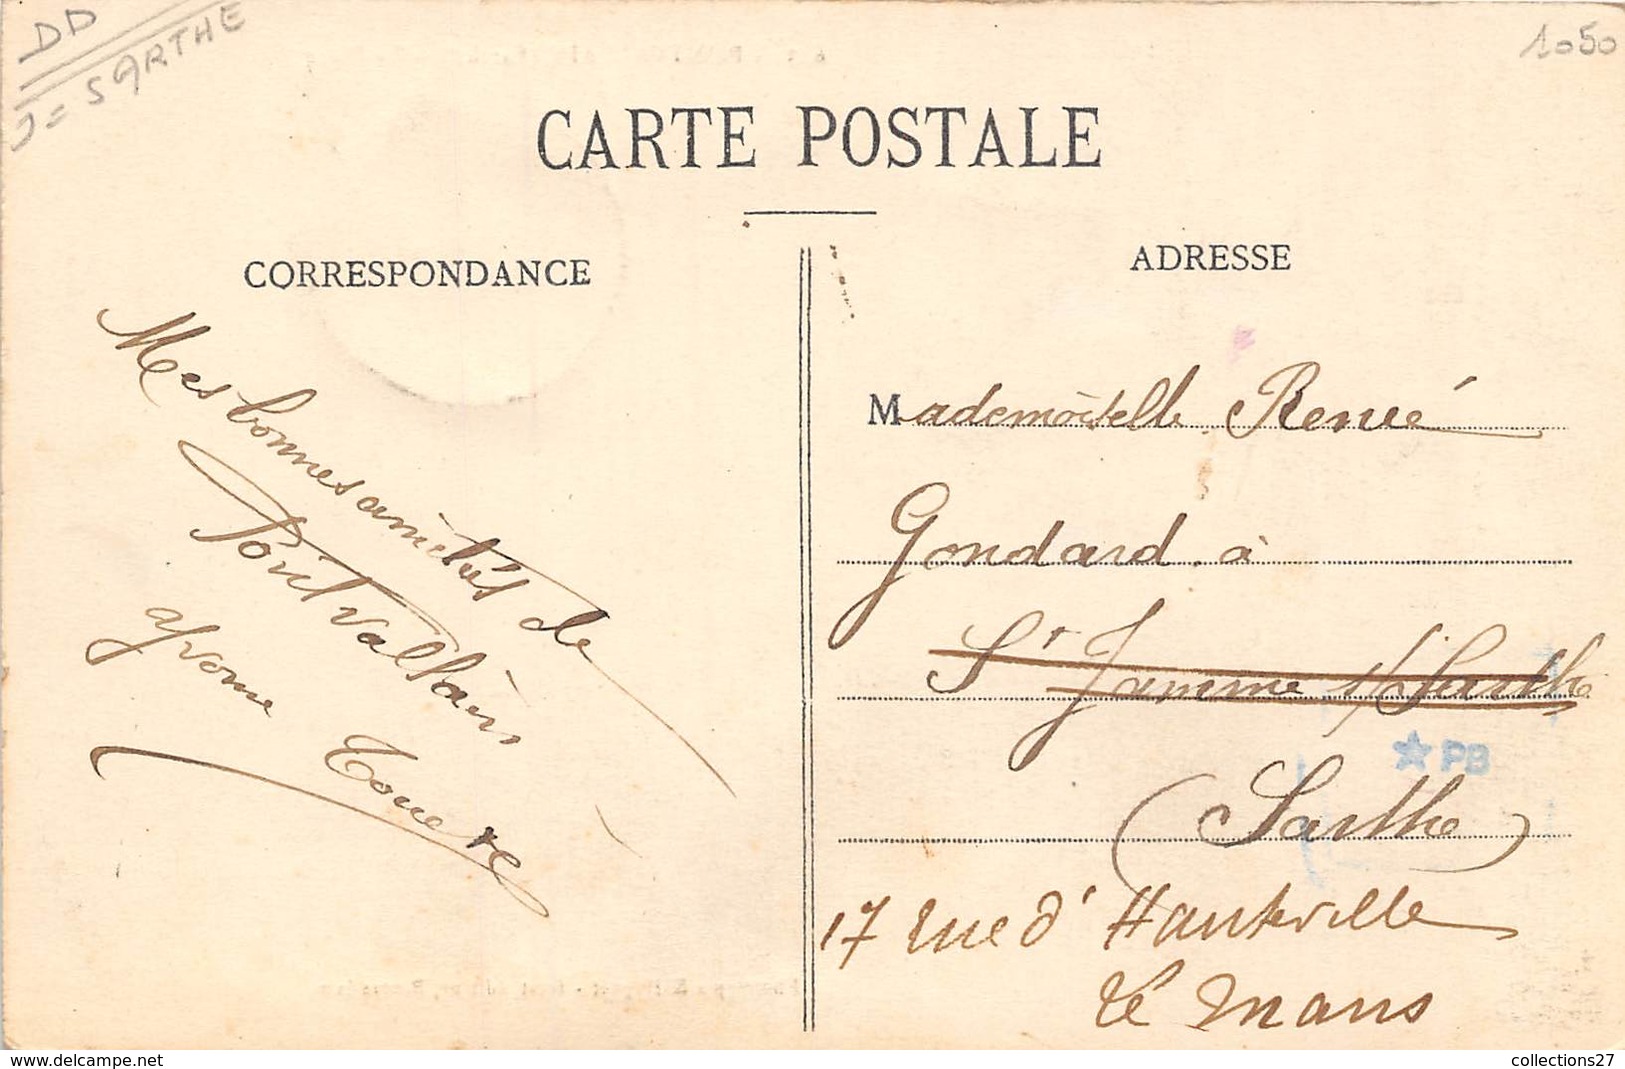 DD
J = SARTHE
1050
CARTE POSTALE
CORRESPONDANCE
Mes bonnes amitiés de
Pontvallain
Yvonne
ADRESSE
Mademoiselle Renée
Gondard à
St Jamme s/ Sarthe
PB
(Sarthe)
17 rue d'Hauteville
Le Mans
collections27